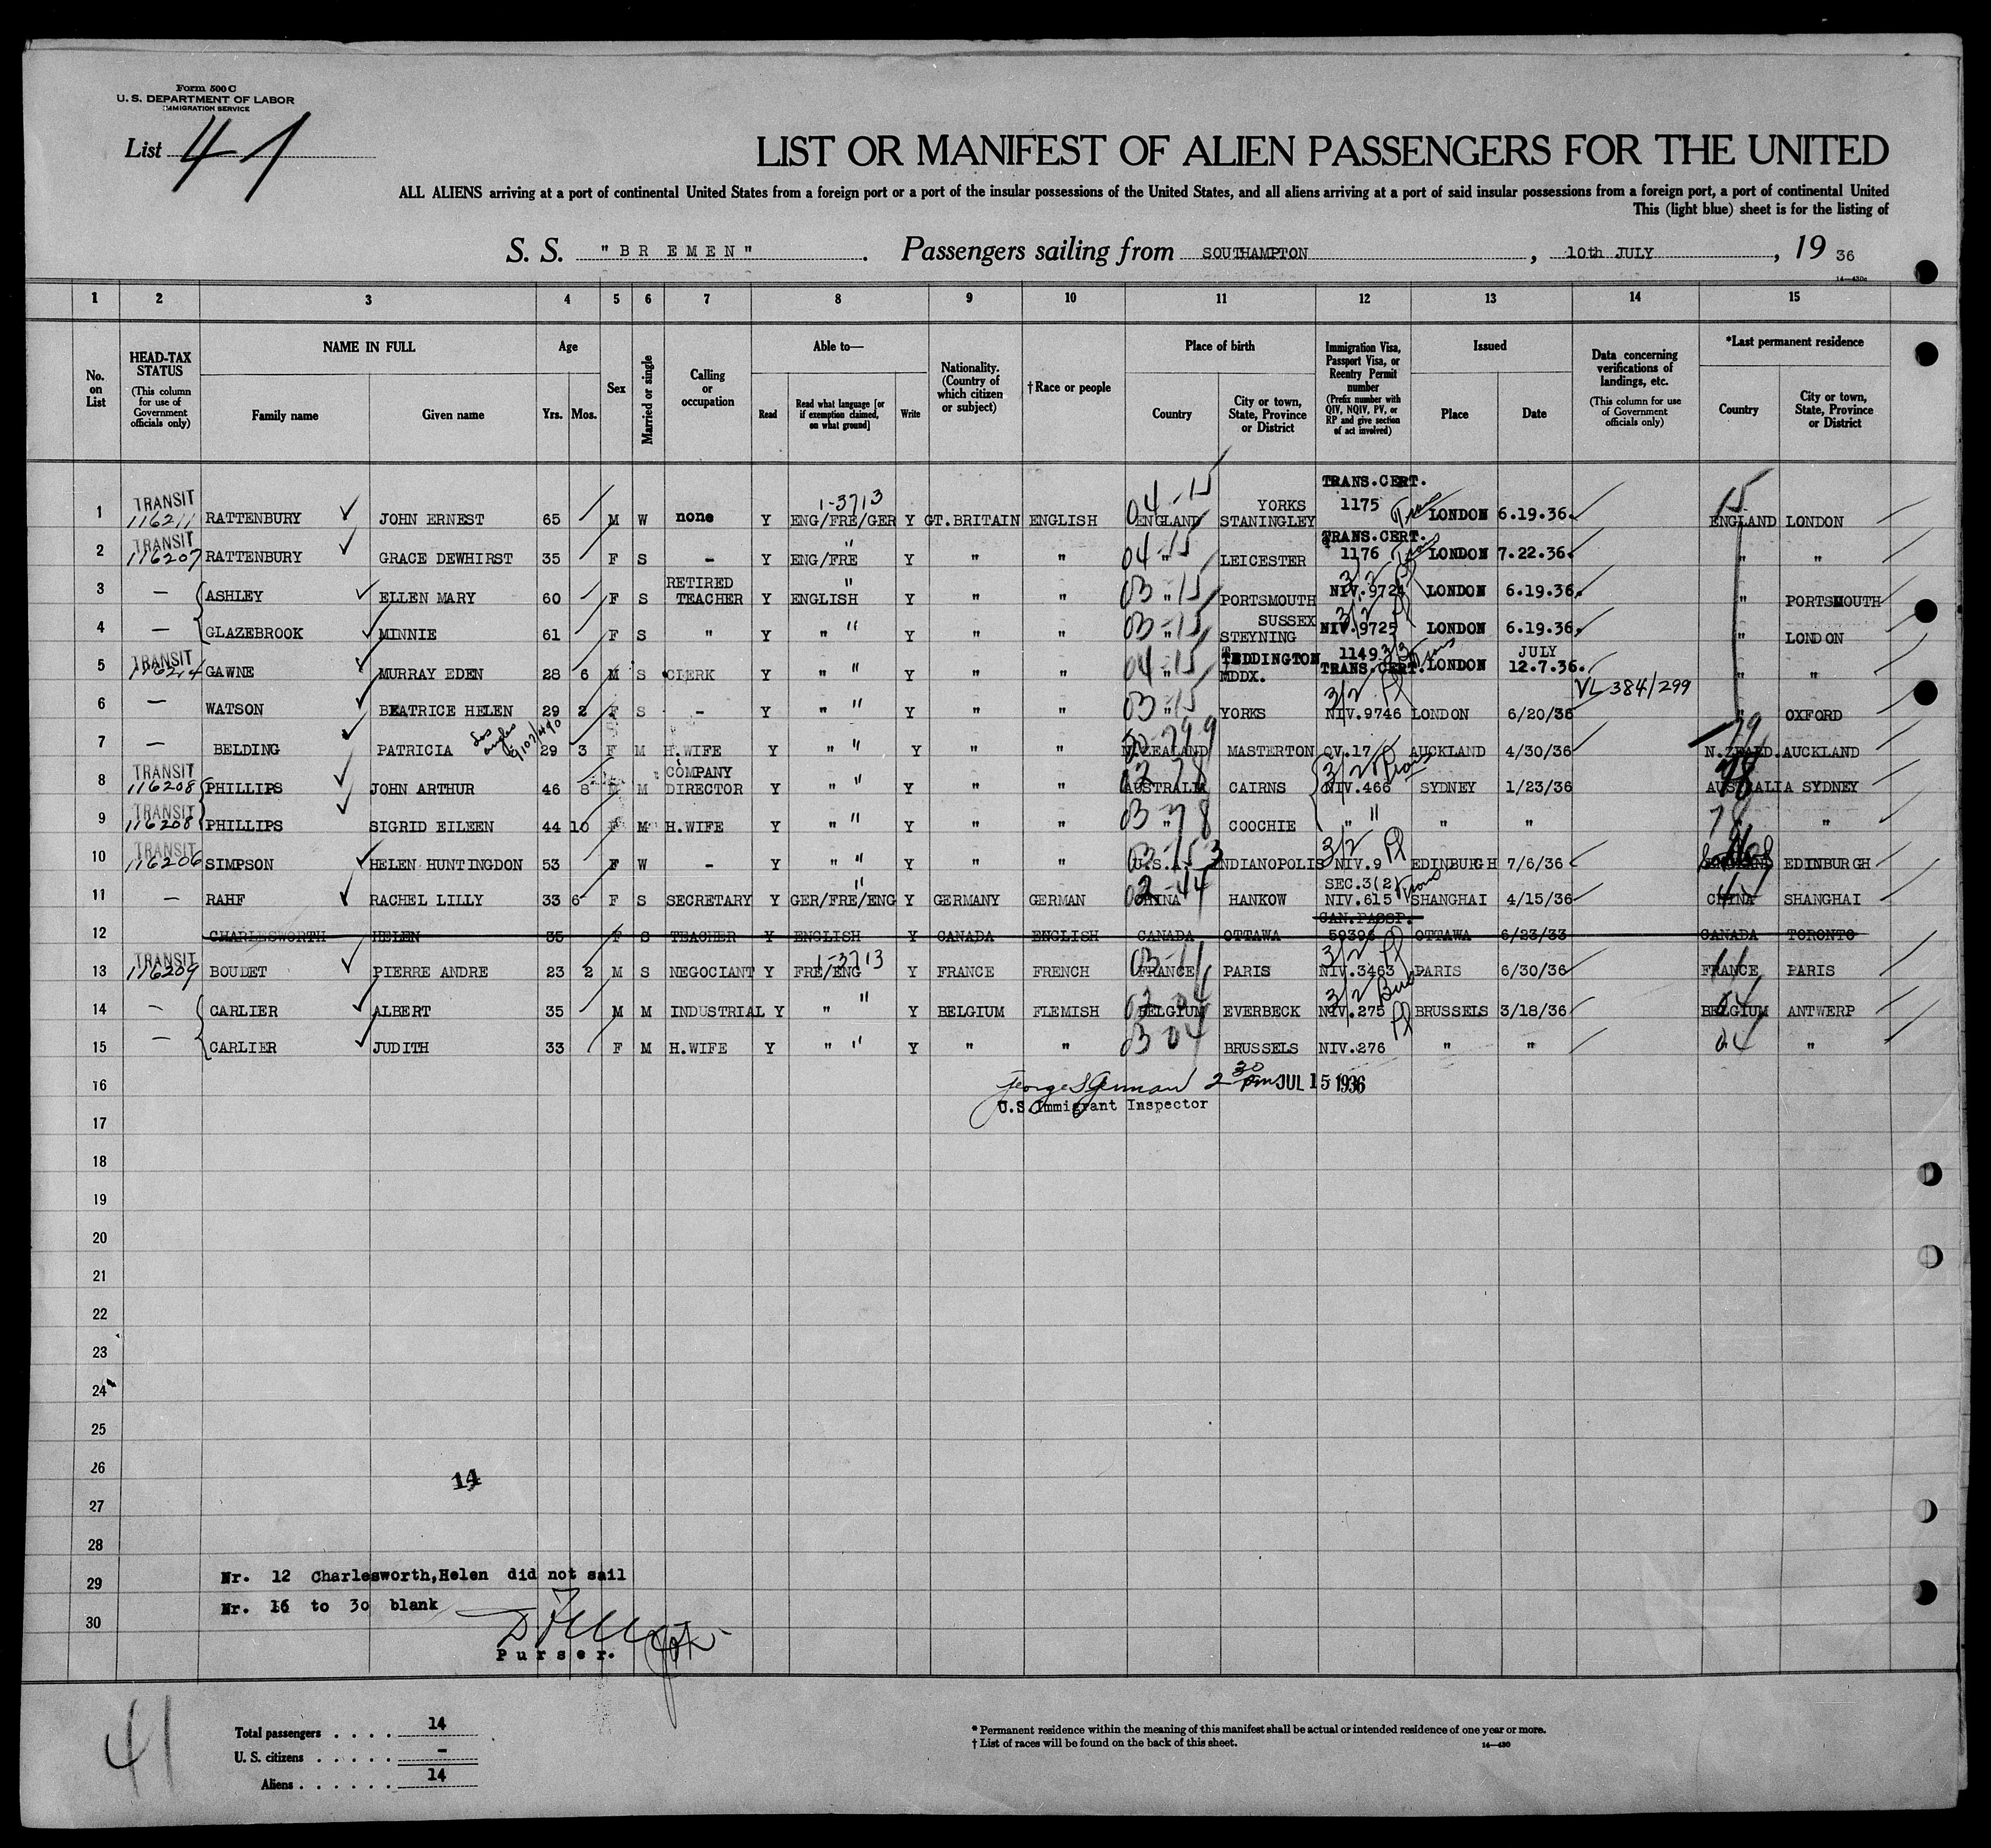 Form 500 C
U. S. DEPARTMENT OF LABOR
IMMIGRATION SERVICE
List 41
LIST OR MANIFEST OF ALIEN PASSENGERS FOR THE UNITED
ALL ALIENS arriving at a port of continental United States from a foreign port or a port of the insular possessions of the United States, and all aliens arriving at a port of said insular possessions from a foreign port, a port of continental United
This (light blue) sheet is for the listing of
S. S. "BREMEN". Passengers sailing from SOUTHAMPTON, 10th JULY, 19 36
14—430c
1 2 3 4 5 6 7 8 9 10 11 12 13 14 15
No. on List
HEAD-TAX STATUS (This column for use of Government officials only)
NAME IN FULL Family name Given name
Age Yrs. Mos.
Sex
Married or single
Calling or occupation
Able to— Read Read what language [or if exemption claimed, on what ground] Write
Nationality. (Country of which citizen or subject)
† Race or people
Place of birth Country City or town, State, Province or District
Immigration Visa, Passport Visa, or Reentry Permit number (Prefix number with QIV, NQIV, PV, or RP and give section of act involved)
Issued Place Date
Data concerning verifications of landings, etc. (This column for use of Government officials only)
*Last permanent residence Country City or town, State, Province or District
1 TRANSIT 116211 RATTENBURY JOHN ERNEST 65 M W none Y 1-3713 ENG/FRE/GER Y GT.BRITAIN ENGLISH 04-15 ENGLAND YORKS STANINGLEY TRANS.CERT. 1175 LONDON 6.19.36. 15 ENGLAND LONDON
2 TRANSIT 116207 RATTENBURY GRACE DEWHIRST 35 F S - Y ENG/FRE " Y " " 04-15 " LEICESTER TRANS.CERT. 1176 LONDON 7.22.36. " "
3 — ASHLEY ELLEN MARY 60 F S RETIRED TEACHER Y ENGLISH " Y " " 03-15 " PORTSMOUTH 3/2 NIV.9724 LONDON 6.19.36. " PORTSMOUTH
4 — GLAZEBROOK MINNIE 61 F S " Y " " Y " " 03-15 " SUSSEX STEYNING 3/2 NIV.9725 LONDON 6.19.36. " LONDON
5 TRANSIT 116214 GAWNE MURRAY EDEN 28 6 M S CLERK Y " " Y " " 04-15 " TEDDINGTON MDDX. 1149 TRANS.CERT. LONDON JULY 12.7.36. " "
6 — WATSON BEATRICE HELEN 29 2 F S - Y " " Y " " 03-15 " YORKS 3/2 NIV.9746 LONDON 6/20/36 VL 384/299 " OXFORD
7 — BELDING PATRICIA Los Angeles 29 3 F M H.WIFE Y " " Y " " N.ZEALAND MASTERTON QV.17 AUCKLAND 4/30/36 79 N.ZEALD. AUCKLAND
8 TRANSIT 116208 PHILLIPS JOHN ARTHUR 46 8 M M COMPANY DIRECTOR Y " " Y " " AUSTRALIA CAIRNS 3/2 NIV.466 SYDNEY 1/23/36 78 AUSTRALIA SYDNEY
9 TRANSIT 116208 PHILLIPS SIGRID EILEEN 44 10 F M H.WIFE Y " " Y " " 03-78 " COOCHIE " " " " 78 " "
10 TRANSIT 116206 SIMPSON HELEN HUNTINGDON 53 F W - Y " " Y " " U.S.A. INDIANOPOLIS 3/2 NIV.9 EDINBURGH 7/6/36 EDINBURGH
11 — RAHF RACHEL LILLY 33 6 F S SECRETARY Y GER/FRE/ENG " Y GERMANY GERMAN 02-44 CHINA HANKOW SEC.3(2) NIV.615 SHANGHAI 4/15/36 CHINA SHANGHAI
12 CHARLESWORTH HELEN 35 F S TEACHER Y ENGLISH Y CANADA ENGLISH CANADA OTTAWA CAN.PASSP. 59396 OTTAWA 6/23/33 CANADA TORONTO
13 TRANSIT 116209 BOUDET PIERRE ANDRE 23 2 M S NEGOCIANT Y 1-3713 FRE/ENG Y FRANCE FRENCH 03-11 FRANCE PARIS 3/2 NIV.3463 PARIS 6/30/36 11 FRANCE PARIS
14 — CARLIER ALBERT 35 M M INDUSTRIAL Y " " Y BELGIUM FLEMISH BELGIUM EVERBECK 3/2 NIV.275 BRUSSELS 3/18/36 04 BELGIUM ANTWERP
15 — CARLIER JUDITH 33 F M H.WIFE Y " " Y " " 03 04 BRUSSELS NIV.276 " " 04 "
16 2 30 pm JUL 15 1936
U.S. Immigrant Inspector
17
18
19
20
21
22
23
24
25
26
14
27
28
29 Nr. 12 Charlesworth,Helen did not sail
30 Nr. 16 to 30 blank
Purser.
41
Total passengers . . . . 14
U. S. citizens . . . . . -
Aliens . . . . . . 14
* Permanent residence within the meaning of this manifest shall be actual or intended residence of one year or more.
† List of races will be found on the back of this sheet.
14—430